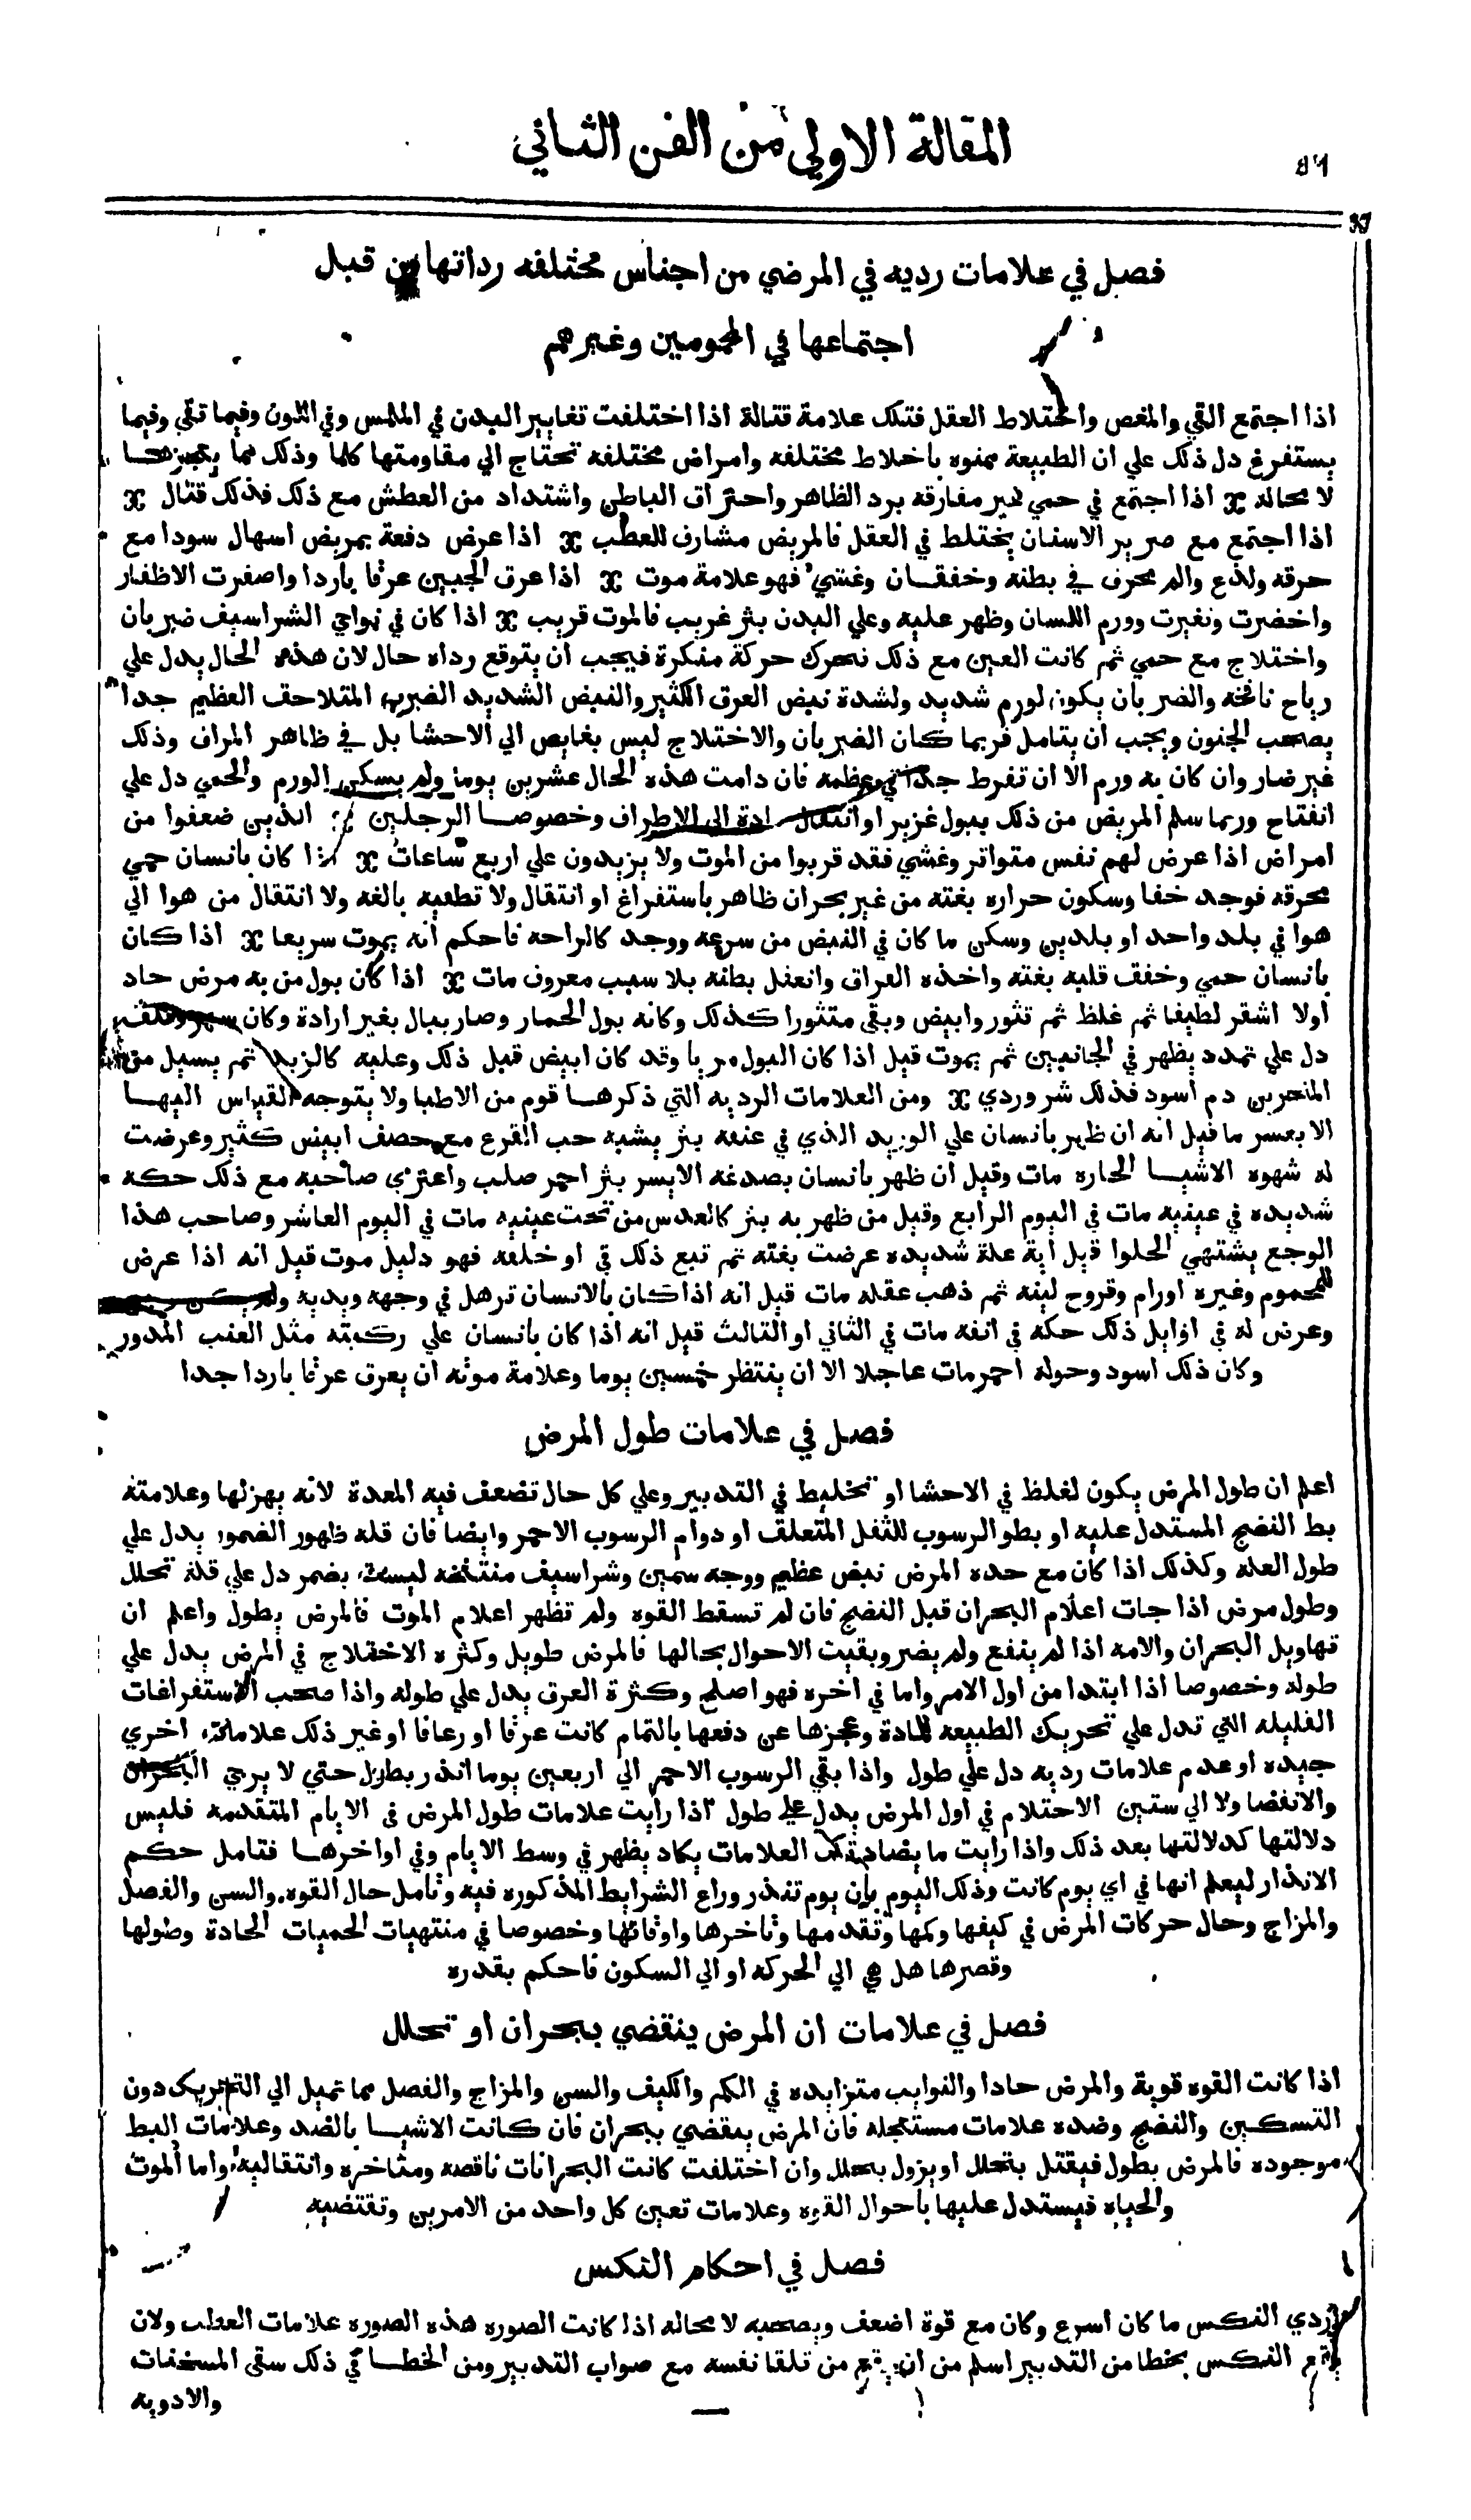 المقالة الاولي من الفن الثاني
فصل في علامات رديه في المرضي من اجناس مختلفه رداتها من قبل
اجتماعها في المحمومين وغيرهم
اذا اجتمع القي والمغص واختلاط العقل فتلك علامة قتالة اذا اختلفت تغايير البدن في الملمس وفي اللون وفيما تقي وفيما
يستفرغ دل ذلك علي ان الطبيعة ممنوه باخلاط مختلفه وامراض مختلفه تحتاج الي مقاومتها كلها وذلك مما يعجزهــا
لا محاله اذا اجتمع في حمي غير مفارقه برد الظاهر واحتراق الباطن واشتداد من العطش مع ذلك فذلك قتال
اذا اجتمع مع صرير الاسنان يختلط في العقل فالمريض مشارف للعطب اذا عرض دفعة بمريض اسهال سودا مع
حرقه ولذع والم محرف في بطنه وخفقــان وغشي فهو علامة موت اذا عرق الجبين عرقا باردا واصفرت الاظفار
واخضرت وتغيرت وورم اللسان وظهر عليه وعلي البدن بثر غريب فالموت قريب اذا كان في نواحي الشراسيف ضربان
واختلاج مع حمي ثم كانت العين مع ذلك تتحرك حركة منكرة فيجب ان يتوقع رداه حال لان هذه الحال يدل علي
رياح نافخه والضربان يكون لورم شديد ولشدة نبض العرق الكثير والنبض الشديد الضرب المتلاحق العظيم جدا
يصحب الجنون ويجب ان يتامل فربما كــان الضربان والاختلاج ليس بغايص الي الاحشا بل في ظاهر المراق وذلك
غير ضار وان كان به ورم الا ان تفرط جدا في عظمه فان دامت هذه الحال عشرين يوما ولم يسكن الورم والحمي دل علي
انفتاح وربما سلم المريض من ذلك ببول غزير او انتقال مادة الي الاطراف وخصوصــا الرجلين الذين ضعفوا من
امراض اذا عرض لهم نفس متواتر وغشي فقد قربوا من الموت ولا يزيدون علي اربع ساعات اذا كان بانسان حمي
محرقه فوجد خفا وسكون حراره بغته من غير بحران ظاهر باستفراغ او انتقال ولا تطفيه بالغه ولا انتقال من هوا الي
هوا في بلد واحد او بلدين وسكن ما كان في النبض من سرعه ووجد كالراحه فاحكم انه يموت سريعا اذا كــان
بانسان حمي وخفق قلبه بغته واخذه الفراق وانعقل بطنه بلا سبب معروف مات اذا كان بول من به مرض حاد
اولا اشقر لطيفا ثم غلظ ثم تثور وابيض وبقي متثورا كذلك وكانه بول الحمار وصار يبال بغير ارادة وكان سهر وقلق
دل علي تمدد يظهر في الجانبين ثم يموت قيل اذا كان البول مريا وقد كان ابيض قبل ذلك وعليه كالزبد ثم يسيل من
المنخرين دم اسود فذلك شر وردي ومن العلامات الرديه التي ذكرهــا قوم من الاطبا ولا يتوجه القياس اليهــا
الا بعسر ما قيل انه ان ظهر بانسان علي الوريد الذي في عنقه بثر يشبه حب القرع مع حصف ابيض كثير وعرضت
له شهوه الاشيــا الحاره مات وقيل ان ظهر بانسان بصدغه الايسر بثر احمر صلب واعتري صاحبه مع ذلك حكه
شديده في عينيه مات في اليوم الرابع وقيل من ظهر به بثر كالعدس من تحت عينيه مات في اليوم العاشر وصاحب هذا
الوجع يشتهي الحلوا قيل اية علة شديده عرضت بغته ثم تبع ذلك قي او خلفه فهو دليل موت قيل انه اذا عرض
للمحموم وغيره اورام وقروح لينه ثم ذهب عقله مات قيل انه اذا كان بالانسان ترهل في وجهه ويديه ولم يكن
وعرض له في اوايل ذلك حكه في انفه مات في الثاني او الثالث قيل انه اذا كان بانسان علي ركبته مثل العنب المدور
وكان ذلك اسود وحوله احمر مات عاجلا الا ان ينتظر خمسين يوما وعلامة موته ان يعرق عرقا باردا جدا
فصل في علامات طول المرض
اعلم ان طول المرض يكون لغلظ في الاحشا او تخليط في التدبير وعلي كل حال تضعف فيه المعدة لانه يهزلها وعلامته
بط النضج المستدل عليه او بطو الرسوب للثفل المتعلق او دوام الرسوب الاحمر وايضا فان قله ظهور الضمور يدل علي
طول العله وكذلك اذا كان مع حده المرض نبض عظيم ووجه سمين وشراسيف منتفخه ليست بضمر دل علي قلة تحلل
وطول مرض اذا جات اعلام البحران قبل النضج فان لم تسقط القوه ولم تظهر اعلام الموت فالمرض يطول واعلم ان
تهاويل البحران والامه اذا لم ينفع ولم يضر وبقيت الاحوال بحالها فالمرض طويل وكثره الاختلاج في المرض يدل علي
طوله وخصوصا اذا ابتدا من اول الامر واما في اخره فهو اصلح وكثرة العرق يدل علي طوله واذا صحب الاستفراغات
القليله التي تدل علي تحريك الطبيعه للمادة وعجزها عن دفعها بالتمام كانت عرقا او رعافا او غير ذلك علامات اخري
جيده او عدم علامات رديه دل علي طول واذا بقي الرسوب الاحمر الي اربعين يوما انذر بطول حتي لا يرجي البحران
والانقضا ولا الي ستين الاحتلام في اول المرض يدل علي طول اذا رايت علامات طول المرض في الايام المتقدمه فليس
دلالتها كدلالتها بعد ذلك واذا رايت ما يضاد تلك العلامات يكاد يظهر في وسط الايام وفي اواخرهــا فتامل حكم
الانذار ليعلم انها في اي يوم كانت وذلك اليوم باي يوم تنذر وراع الشرايط المذكوره فيه وتامل حال القوه والسن والفصل
والمزاج وحال حركات المرض في كيفها وكمها وتقدمها وتاخرها واوقاتها وخصوصا في منتهيات الحميات الحادة وطولها
وقصرها هل هي الي الحركه او الي السكون فاحكم بقدره
فصل في علامات ان المرض ينقضي ببحران او تحلل
اذا كانت القوه قوية والمرض حادا والنوايب متزايده في الكم والكيف والسن والمزاج والفصل مما تميل الي التحريك دون
التسكين والنضج وضده علامات مستعجله فان المرض ينقضي ببحران فان كــانت الاشيــا بالضد وعلامات البط
موجوده فالمرض يطول فيقتل بتحلل او يزول بتحلل وان اختلفت كانت البحرانات ناقصه ومتاخره وانتقاليه واما الموت
والحياه فيستدل عليها باحوال القوه وعلامات تعين كل واحد من الامرين وتقتضيه
فصل في احكام النكس
اردي النكس ما كان اسرع وكان مع قوة اضعف ويصحبه لا محاله اذا كانت الصوره هذه الصوره علامات العطب ولان
يقع النكس بخطا من التدبير اسلم من ان يقع من تلقا نفسه مع صواب التدبير ومن الخطــا في ذلك سقي المسخنات
والادويه